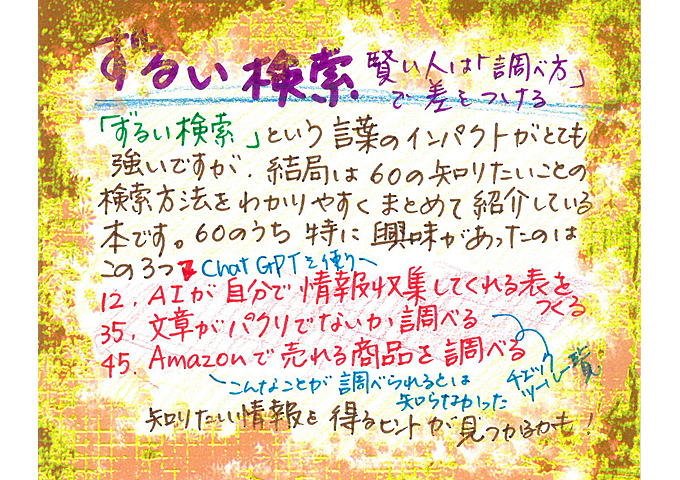 ずるい検索 賢い人は「調べ方」
で差をつける
「ずるい検索」という言葉のインパクトがとても
強いですが、結局は60の知りたいことの
検索方法をわかりやすくまとめて紹介している
本です。60のうち特に興味があったのは
この3つ ChatGPTを使う
12. AIが自分で情報収集してくれる表を
つくる
35. 文章がパクリでないか調べる
45. Amazonで売れる商品を調べる
チェック
ツール一覧
こんなことが調べられるとは
知らなかった
知りたい情報を得るヒントが見つかるかも!